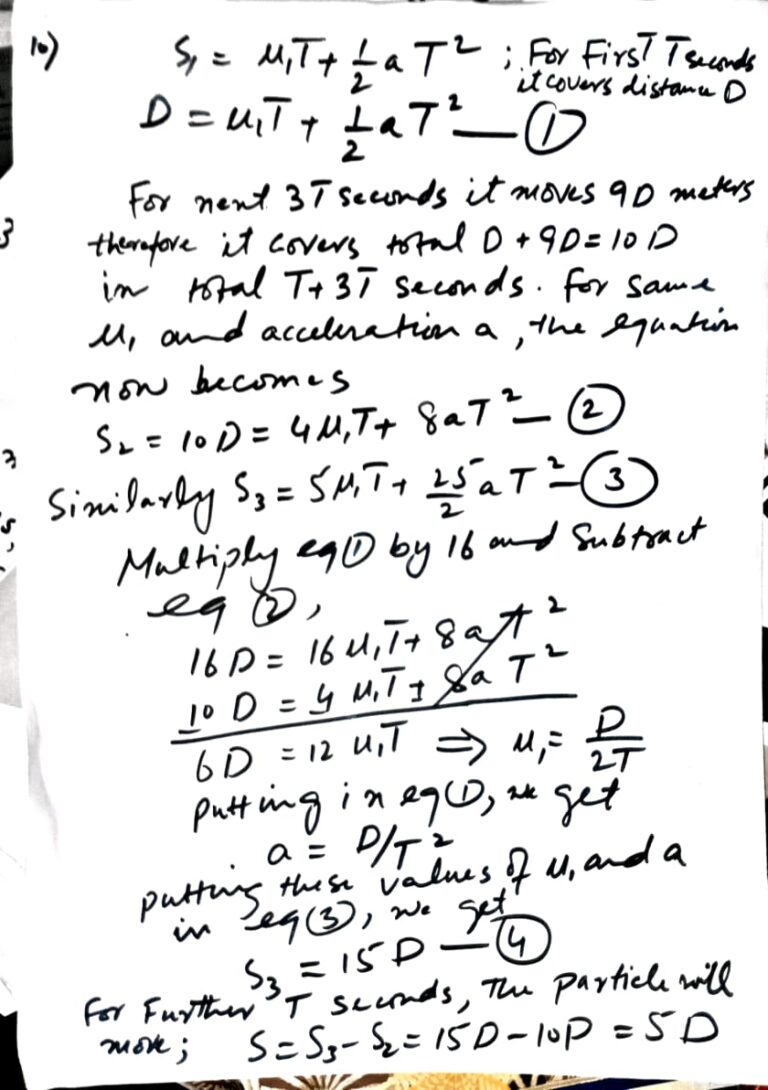 10) S₁ = u₁T + ½ a T² ; For First T seconds
it covers distance D
D = u₁T + ½ a T² — ①
For next 3T seconds it moves 9D meters
therefore it covers total D + 9D = 10D
in total T + 3T seconds. For same
u₁ and acceleration a, the equation
now becomes
S₂ = 10D = 4u₁T + 8aT² — ②
Similarly S₃ = 5u₁T + 25/2 a T² — ③
Multiply eq ① by 16 and Subtract
eq ②,
16D = 16u₁T + 8aT²
10D = 4u₁T + 8aT²
6D = 12u₁T ⇒ u₁ = D/2T
putting in eq ①, we get
a = D/T²
putting these values of u₁ and a
in eq (3), we get
S₃ = 15D — ④
For Further T seconds, the particle will
move; S = S₃ - S₂ = 15D - 10D = 5D